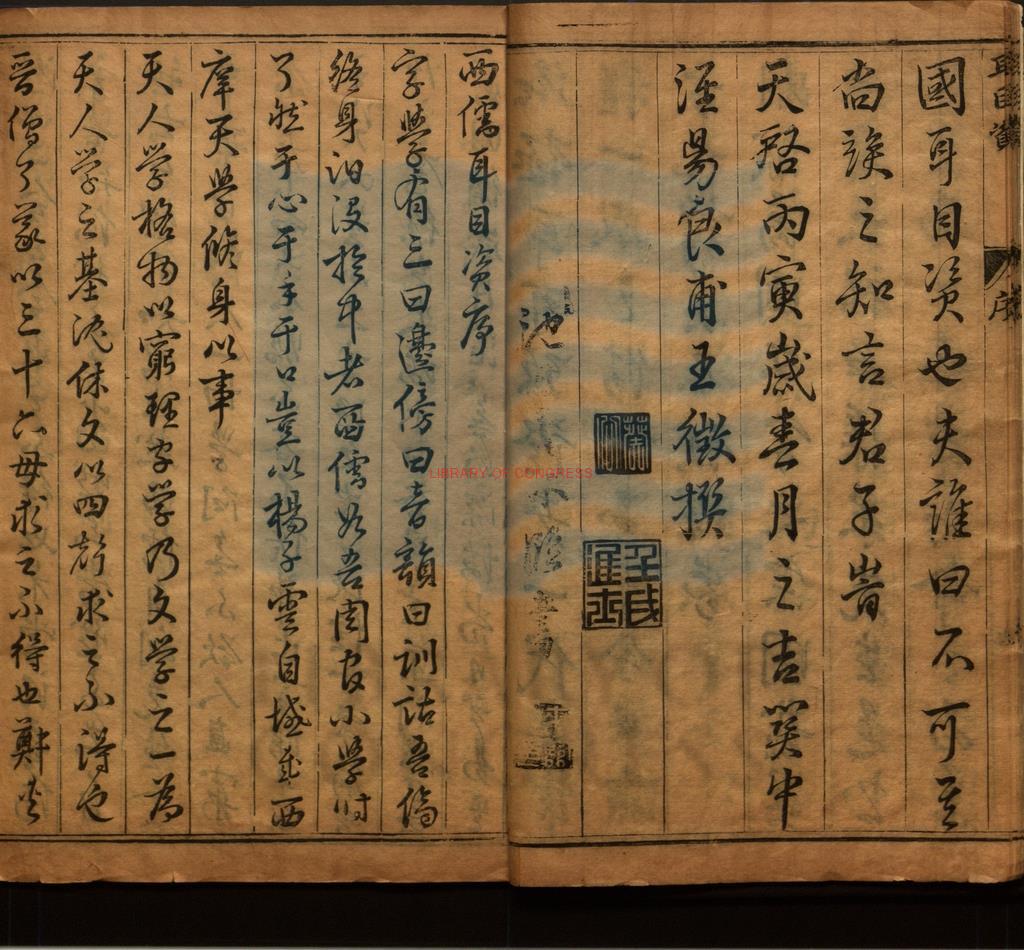 耳目資
序
國耳目資也夫誰曰不可
尚俟之知言君子旹
天啓丙寅歲春月之吉關中
涇陽良甫王徵撰
葵心
壬戌進士
西儒耳目資序
字學有三曰邊傍曰音韻曰訓詁吾儕
終身汩沒於中者西儒如吾小學時
了然于心于手于口豈以楊子雲自域哉西
庠天學修身以事
天人學格物以窮理字學乃文學之一為
天人學之基沈休文以四聲求之不得也
晉僧了義以三十六母求之不得也鄭夾
LIBRARY OF CONGRESS